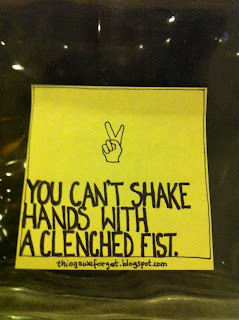 YOU CAN'T SHAKE
HANDS WITH
A CLENCHED FIST.
thingsweforget.blogspot.com